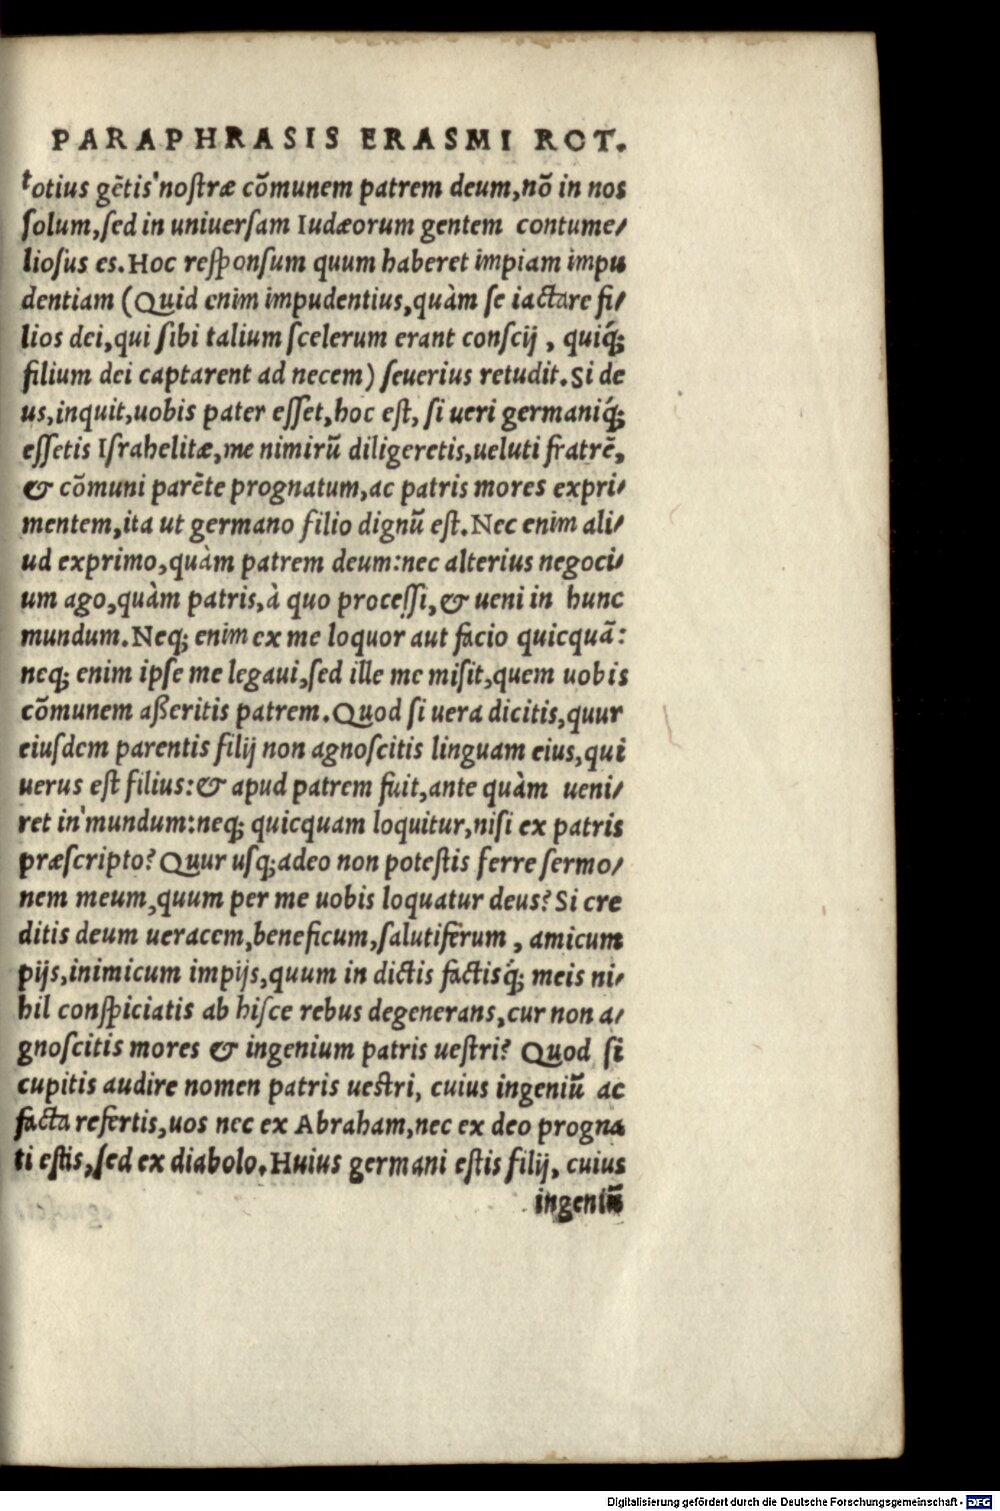 PARAPHRASIS ERASMI ROT.
totius gẽtis nostræ cõmunem patrem deum, nõ in nos
solum, sed in uniuersam Iudæorum gentem contume/
liosus es. Hoc responsum quum haberet impiam impu
dentiam (Quid enim impudentius, quàm se iactare fi/
lios dei, qui sibi talium scelerum erant conscij, quiq́;
filium dei captarent ad necem) seuerius retudit. Si de
us, inquit, uobis pater esset, hoc est, si ueri germaniq́;
essetis Israhelitæ, me nimirũ diligeretis, ueluti fratrẽ,
& cõmuni parẽte prognatum, ac patris mores expri/
mentem, ita ut germano filio dignũ est. Nec enim ali/
ud exprimo, quàm patrem deum: nec alterius negoci/
um ago, quàm patris, à quo processi, & ueni in hunc
mundum. Neq; enim ex me loquor aut facio quicquã:
neq; enim ipse me legaui, sed ille me misit, quem uobis
cõmunem aßeritis patrem. Quod si uera dicitis, quur
eiusdem parentis filij non agnoscitis linguam eius, qui
uerus est filius: & apud patrem fuit, ante quàm ueni/
ret in mundum: neq; quicquam loquitur, nisi ex patris
præscripto? Quur usq; adeo non potestis ferre sermo/
nem meum, quum per me uobis loquatur deus? Si cre
ditis deum ueracem, beneficum, salutiferum, amicum
pijs, inimicum impijs, quum in dictis factisq́; meis ni/
hil conspiciatis ab hisce rebus degenerans, cur non a/
gnoscitis mores & ingenium patris uestri? Quod si
cupitis audire nomen patris uestri, cuius ingeniũ ac
facta refertis, uos nec ex Abraham, nec ex deo progna
ti estis, sed ex diabolo. Huius germani estis filij, cuius
ingeniũ
Digitalisierung gefördert durch die Deutsche Forschungsgemeinschaft - DFG